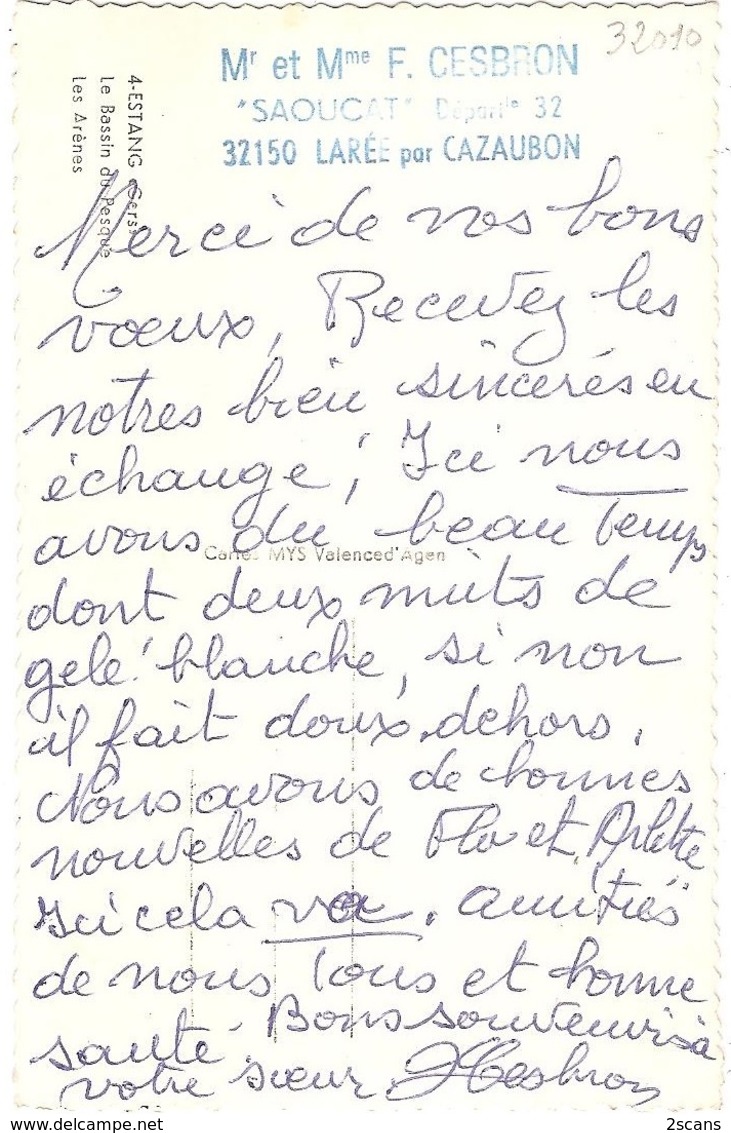 32010
Mr et Mme F. CESBRON
"SAOUCAT" Départle 32
32150 LARÉE par CAZAUBON
4-ESTANG (Gers)
Le Bassin du Pesqué
Les Arènes
Merci de nos bons
vœux, Recevez les
notres bien sincerés en
échange, Ici nous
avons du beau Temps
Cartes MYS Valenced'Agen
dont deux nuits de
gelé blanche, si non
il fait doux dehors.
Nous avons de bonnes
nouvelles de Flo et Arlette
Ici cela va. amitiés
de nous Tous et bonne
santé. Bons souvenirs à
votre sœur. Cesbron
2scans